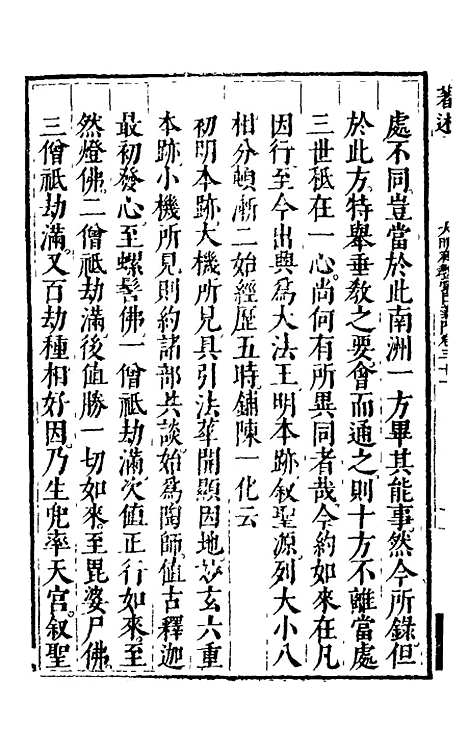 著述
處不同豈當於此南洲一方畢其能事然今所錄但
於此方特舉垂敎之要會而通之則十方不離當處
三世秖在一心尚何有所異同者哉今約如來在凡
因行至今出興爲大法王明本跡叙聖源列大小八
相分頓漸二始經歷五時鋪陳一化云
初明本跡大機所見具引法華開顯因地妙玄六重
本跡小機所見則約諸部共談始爲陶師值古釋迦
最初發心至螺髻佛一僧祇劫滿次值正行如來至
然燈佛二僧祇劫滿後值勝一切如來至毘婆尸佛
三僧祇劫滿又百劫種相好因乃生兜率天宮叙聖